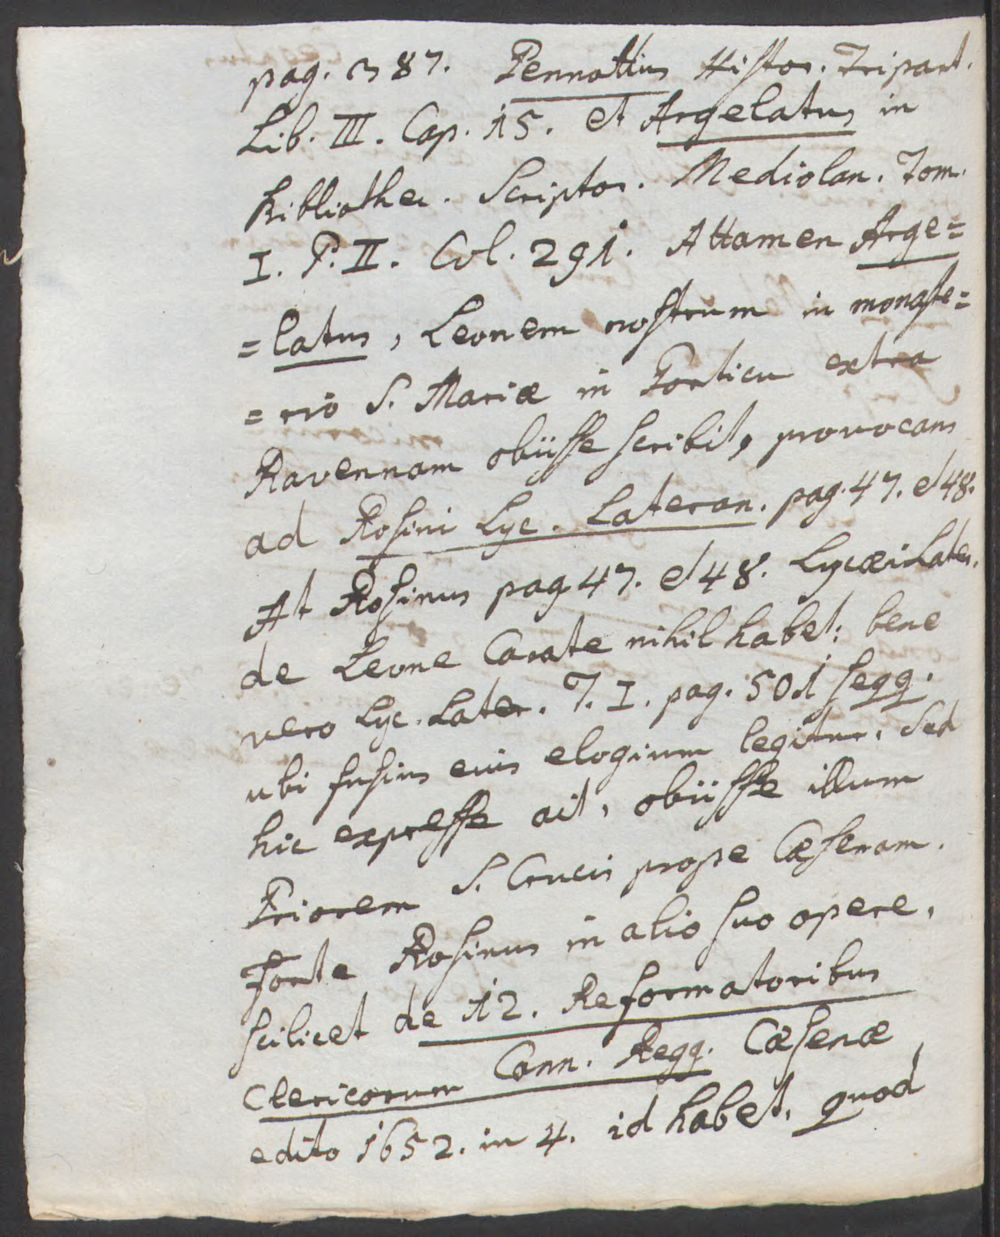 pag. 387. Pennottius Histor. Tripart.
Lib. III. Cap. 15. et Argelatus in
Bibliothec. Scriptor. Mediolan. Tom.
I. P. II. Col. 291. Attamen Arge=
=latus, Leonem nostrum in monaste=
=rio S. Mariæ in Porticu extra
Ravennam obiisse scribit, provocans
ad Rosini Lyc. Lateran. pag. 47. et 48.
At Rosinus pag 47. et 48. Lycæi Later.
de Leone Carate nihil habet: bene
vero Lyc. Later. T. I. pag. 501 seqq.
ubi fusius eius elogium legitur. Sed
hic expresse ait, obiisse illum
Priorem S. Crucis prope Cæsenam.
Forte Rosinus in alio suo opere,
scilicet de 12. Reformatoribus
Clericorum Cann. Regg. Cæsenæ
edito 1652. in 4. id habet, quod